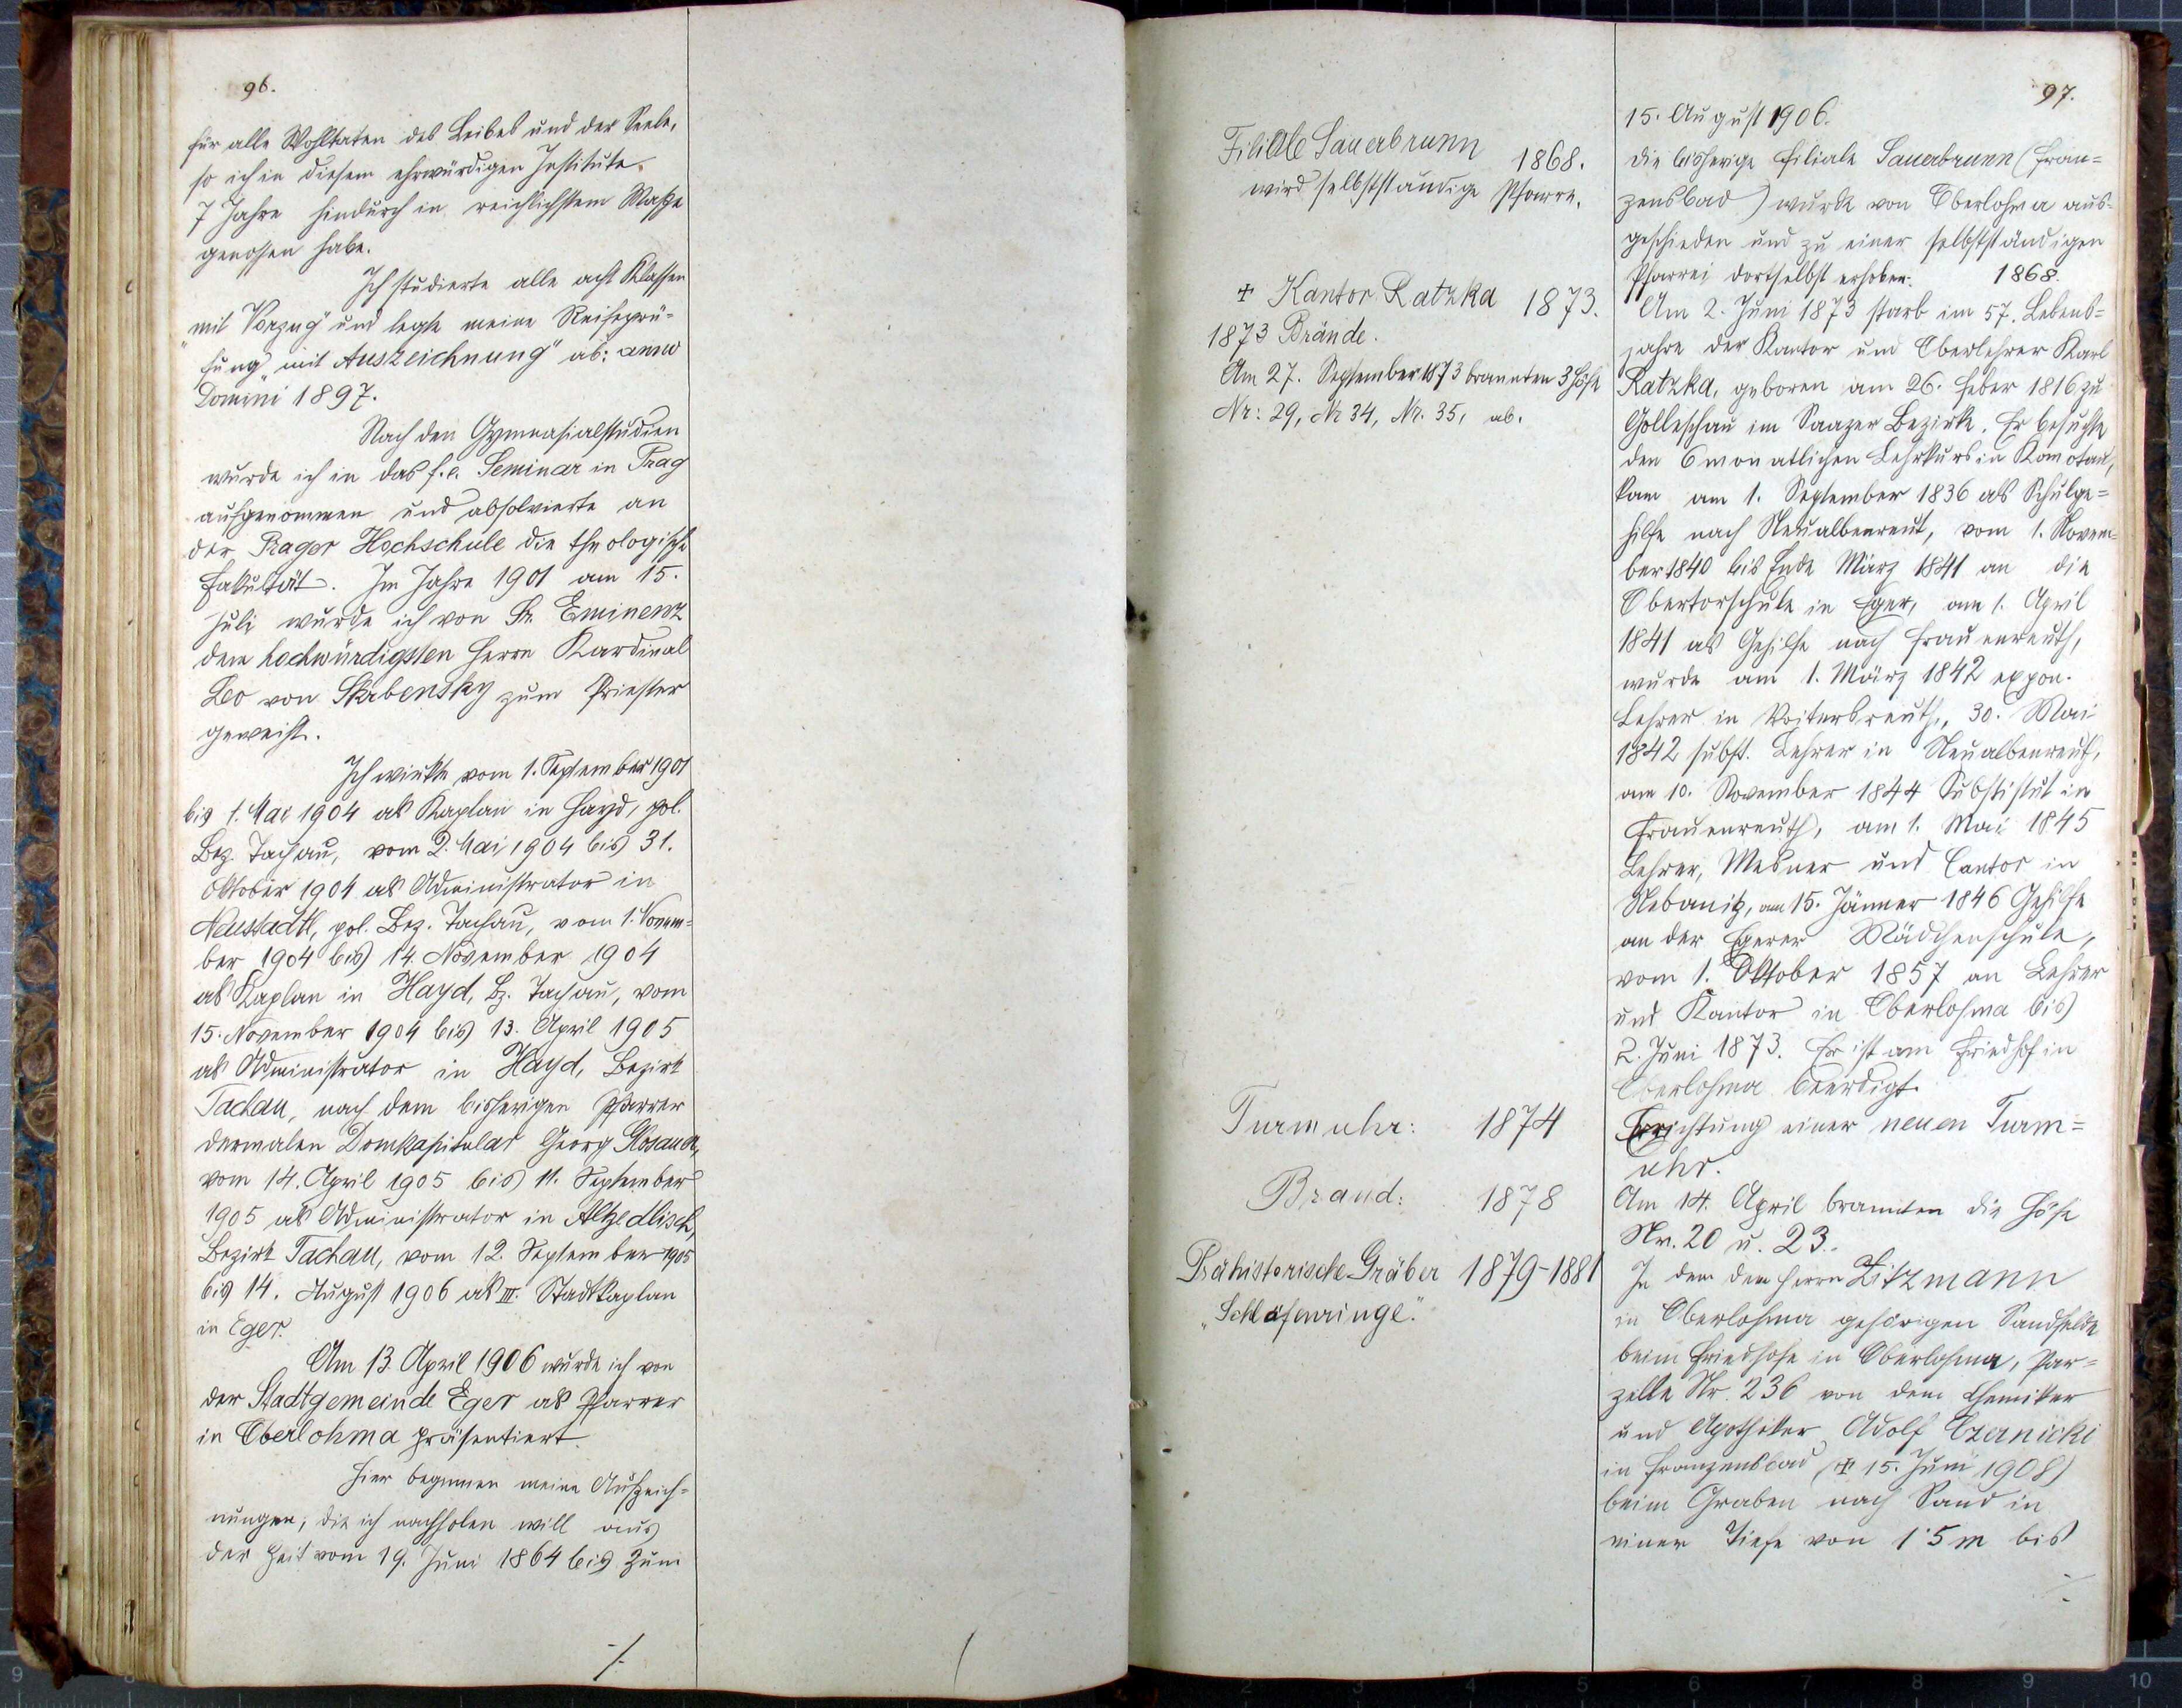 96.
für alle Wohltaten des Leibes und der Seele,
so ich in diesem ehrwürdigen Institute
7 Jahre hindurch in reichlichstem Maße
genossen habe.
Ich studierte alle acht Klassen
"mit Vorzug" und legte meine Reifeprü=
fung "mit Auszeichnung" ab: anno
Domini 1897.
Nach den Gymnasialstudien
wurde ich in das f. e. Seminar in Prag
aufgenommen und absolvierte an
der Prager Hochschule die theologische
Fakultät. Im Jahre 1901 am 15.
Juli wurde ich von Sr. Eminenz
dem hochwürdigsten Herrn Kardinal
Leo von Skrbensky zum Priester
geweiht.
Ich wirkte vom 1. September 1901
bis 1. Mai 1904 als Kaplan in Hayd, pol.
Bez. Tachau, vom 2. Mai 1904 bis 31.
Oktober 1904 als Administrator in
Neustadtl, pol. Bez. Tachau, vom 1. Novem=
ber 1904 bis 14. November 1904
als Kaplan in Hayd, Bz. Tachau, vom
15. November 1904 bis 13. April 1905
als Administrator in Hayd, Bezirk
Tachau, nach dem bisherigen Pfarrer
dermalen Domkapitular Georg
vom 14. April 1905 bis 11. September
1905 als Administrator in Altzedlisch,
Bezirk Tachau, vom 12. September 1905
bis 14. August 1906 als III. Stadtkaplan
in Eger.
Am 13. April 1906 wurde ich von
der Stadtgemeinde Eger als Pfarrer
in Oberlohma präsentiert.
Hier beginnen meine Aufzeich=
nungen, die ich nachholen will aus
der Zeit vom 19. Juni 1864 bis zum
./.
97.
15. August 1906.
Filiale Sauerbrunn 1868.
wird selbstständige Pfarre.
die bisherige Filiale Sauerbrunn (Fran=
zensbad) wurde von Oberlohma aus=
geschieden und zu einer selbstständigen
Pfarrei dortselbst erhoben. 1868.
+ Kantor Ratzka 1873.
1873 Brände.
Am 27. September 1873 brannten 3 Höfe
Nr: 29, Nr 34, Nr. 35, ab.
Am 2. Juni 1873 starb im 57. Lebens=
jahre der Kantor und Oberlehrer Karl
Ratzka, geboren am 26. Feber 1816 zu
Golleschau im Saazer Bezirke. Er besuchte
den 6 monatlichen Lehrkurs in Komotau,
kam am 1. September 1836 als Schulge=
hilfe nach Neualbenreut, vom 1. Novem=
ber 1840 bis Ende März 1841 an die
Obertorschule in Eger, am 1. April
1841 als Gehilfe nach Frauenreuth,
wurde am 1. März 1842 expon.
Lehrer in Voitersreuth, 30. Mai
1842 subst. Lehrer in Neualbenreut,
am 10. November 1844 Substitut in
Frauenreuth, am 1. Mai 1845
Lehrer, Mesner und Cantor in
Nebanitz, am 15. Jänner 1846 Gehilfe
an der Egerer Mädchenschule,
vom 1. Oktober 1857 an Lehrer
und Kantor in Oberlohma bis
2. Juni 1873. Er ist am Friedhof in
Oberlohma beerdigt.
Turmuhr: 1874
Errichtung einer neuen Turm=
uhr.
Brand: 1878
Am 14. April brannten die Höfe
Nr. 20 u. 23.
Prähistorische Gräber 1879-1881
"Schläfenringe".
In dem dem Herrn Zitzmann
in Oberlohma gehörigen Sandfelde
beim Friedhofe in Oberlohma, Par=
zelle Nr. 236 von dem Chemiker
und Apotheker Adolf Czernicki
in Franzensbad (+ 15. Juni 1908)
beim Graben nach Sand in
einer Tiefe von 1·5 m bis
./.